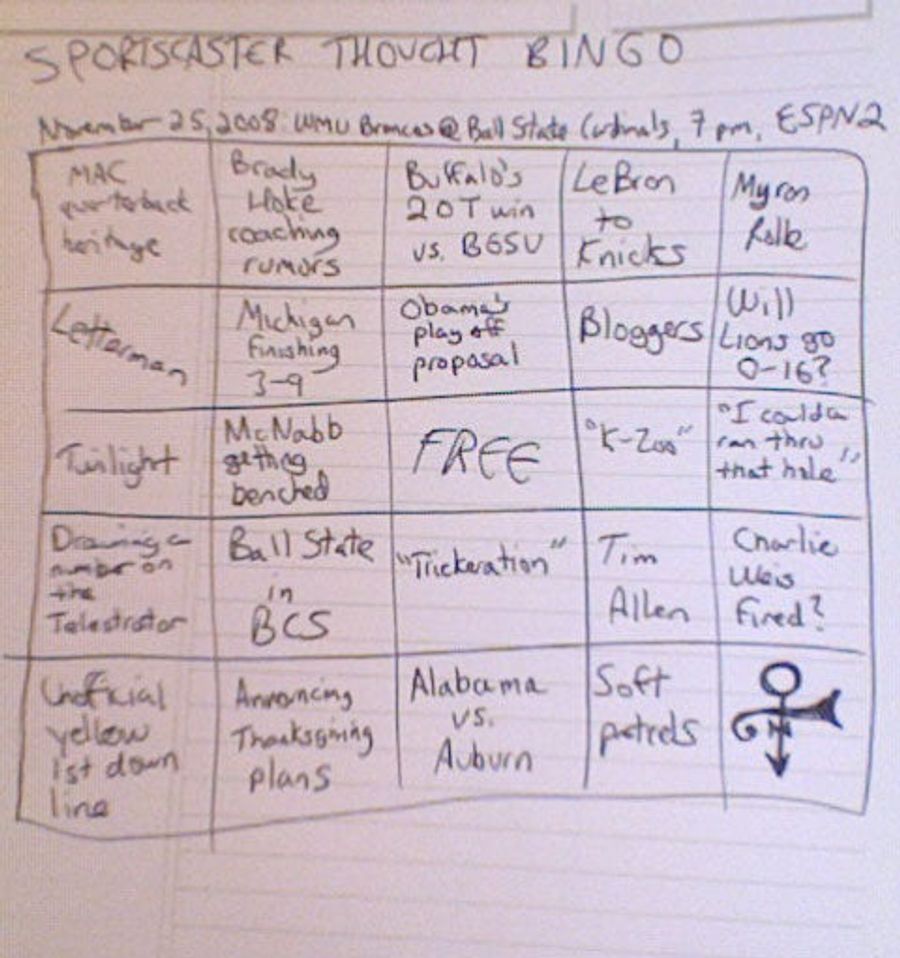 SPORTSCASTER THOUGHT BINGO
November 25, 2008: WMU Broncos @ Ball State Cardinals, 7 pm, ESPN2
MAC
quarterback
heritage
Brady
Hoke
coaching
rumors
Buffalo's
2OT win
vs. BGSU
LeBron
to
Knicks
Myron
Rolle
Letterman
Michigan
finishing
3-9
Obama's
playoff
proposal
Bloggers
Will
Lions go
0-16?
Twilight
McNabb
getting
benched
FREE
"K-Zoo"
"I coulda
ran thru
that hole"
Drawing a
number on
the
Telestrator
Ball State
in
BCS
"Trickeration"
Tim
Allen
Charlie
Weis
Fired?
Unofficial
yellow
1st down
line
Announcing
Thanksgiving
plans
Alabama
vs.
Auburn
Soft
petrels